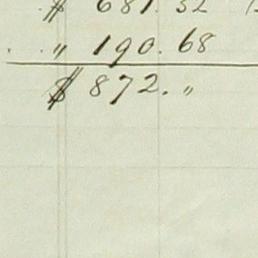 $ 681. 32
" 190. 68
$ 872. "